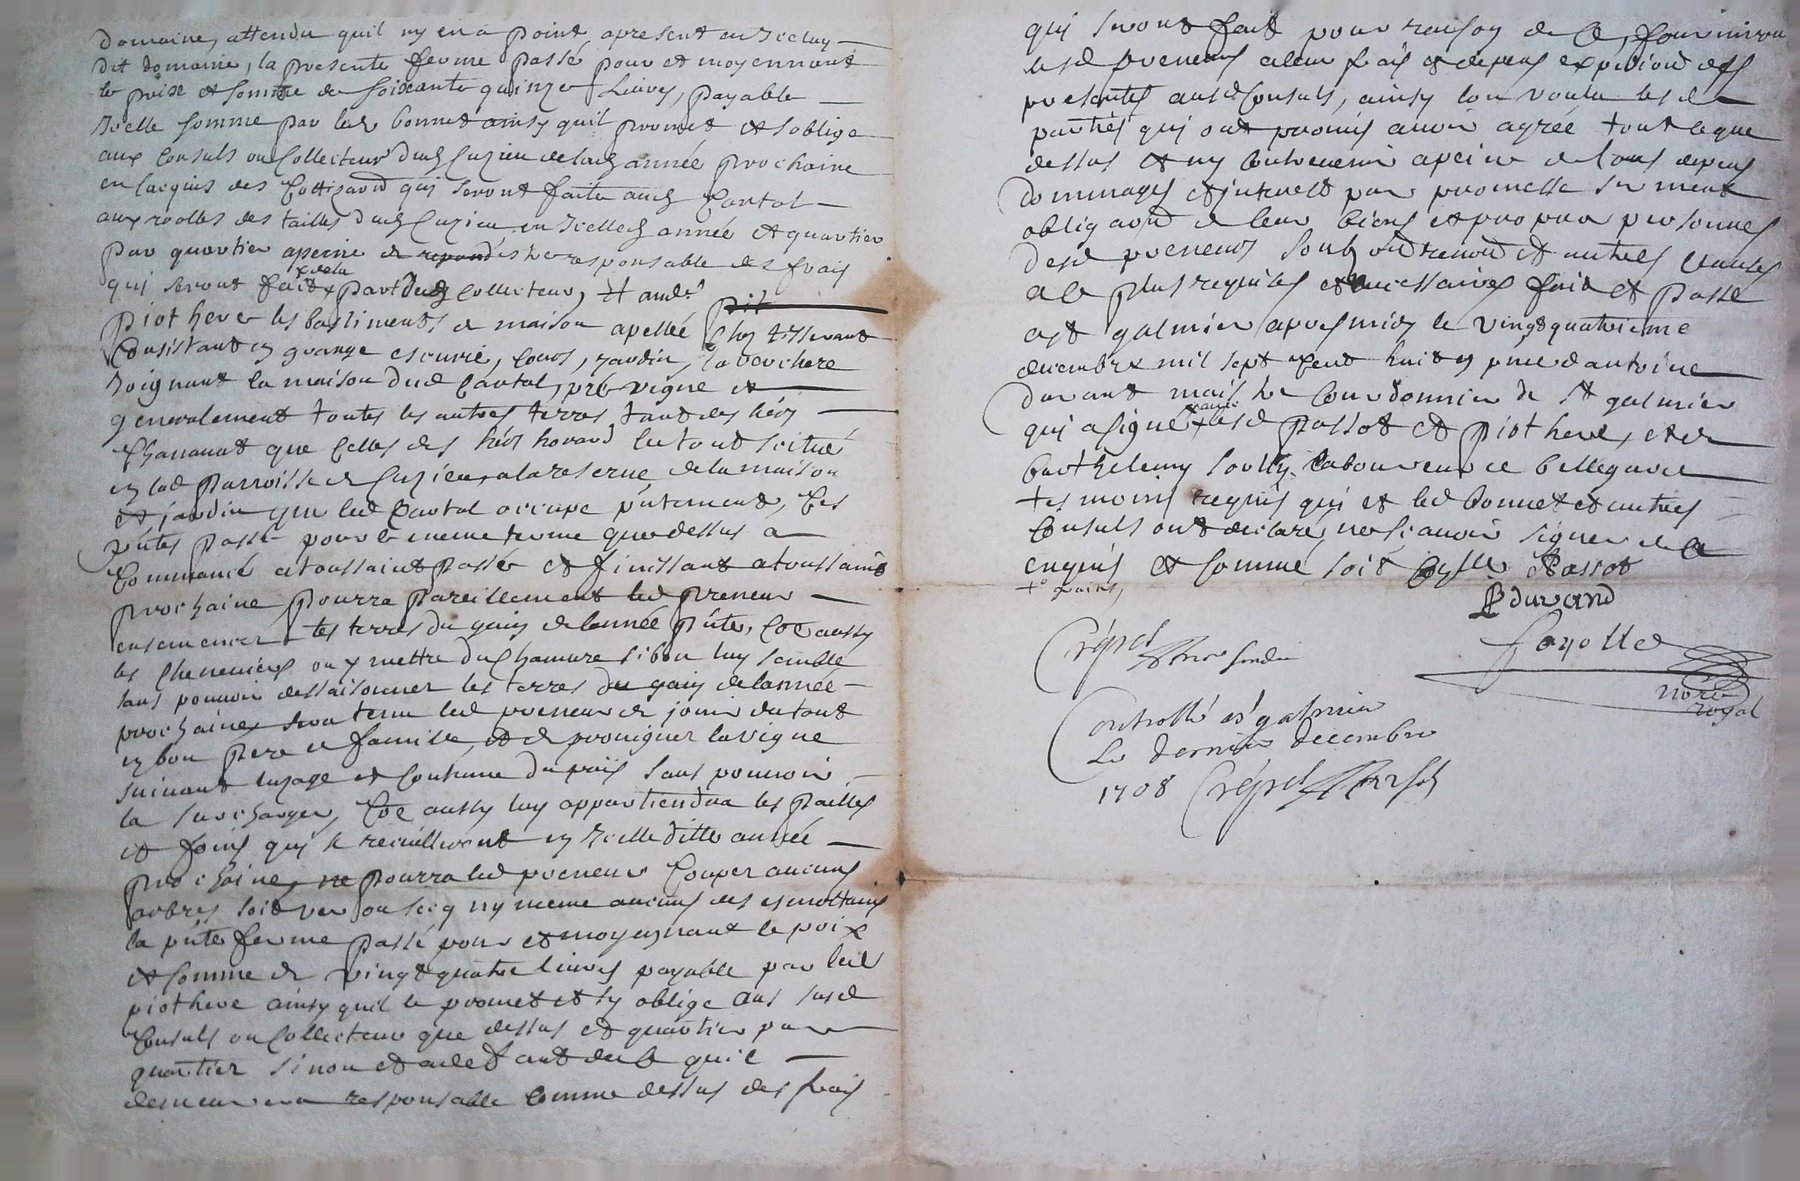 domaine, attendu quil ny en a point apresent en Iceluy
dit domaine, la presente ferme passé pour et moyennant
le prix et somme de soixante quinze Livres, payable
Icelle somme par led bonnet ainsy quil promet et soblige
aux Consuls ou Collecteurs dud Cuzieu de lad année prochaine
en lacquis des Cottisaons qui seront faite aud Cantal
aux roolles des tailles dud Cuzieu en Icelle année et quartier
par quartier apeine de repond estre responsable des frais
qui seront fait x de la part dud Collecteur, Et aud sr
piot here les bastiments de maison apellé Chez tisserant
Consistant en grange escurie, Cours, jardin, la verchere
Joignant la maison dud Cantal, pré vigne et
generalement toutes les autres terres tant des héos
Chananat que celles des héos horard le tout scitué
en lad Parroisse de Cuzieu, a la reserve de la maison
et jardin que led Cantal occupe pntement, Les
pntes passé pour le meme terme que dessus a
Commancé a toussaint passée et finissant a toussaints
prochaine pourra pareillement led preneur
ensemencer les terres du gain de lannée pnte, Coe aussy
les Chenevieres ou y mettre du Chanvre si bon luy semble
sans pouvoir dessaisonner les terres du gain de lannée
prochaine sera tenu led preneur de jouir du tout
en bon pere de famille, et de provigner la vigne
suivant lusage et Coutume du païs sans pouvoir
la surcharger, Coe aussy luy appartiendra les pailles
et foins qui se recuilliront en Icelle ditte année
prochaine, ne pourra led preneur Couper aucuns
arbres soit ver ou secq ny meme aucuns des
la pnte ferme passé pour et moyennant le prix
et somme de vingt quatre livres payable par led
piot here ainsy quil le promet et sy oblige aus susd
Consuls ou Collecteur que dessus et quartier par
quartier sinon et a deffaut de ce quil
demeurera responsable Comme dessus des frais
qui seront fait pour raison de ce, fourniron
lesd preneurs a leur frais et depens expedition des
presentes ausd Consuls, ainsy lon voulu lesd
parties qui ont promis avoir agreé tout ce que
dessus et ny Contrevenir apeine de tous depens
dommages et interest par promesse serment
obligaon de leur biens et propres personnes
desd preneurs soub et autres Clauses
a ce plus requises et necessaires fait et passé
a st galmier apres midy le vingt quatrieme
decembre mil sept Cent huit en pnce dantoine
durant maistre Courdonnier de St galmier
qui a signé x avec lesd passot et piot here, et de
barthelemy souilly laboureur de bellegarde
tesmoins requis qui et led bonnet et autres
Consuls ont declaré ne scavoir signer de ce
enquis et sommé soit Passot
B durand
fayolle
nore
royal
Crépet
Controllé a St galmier
Le dernier decembre
1708 Crépet